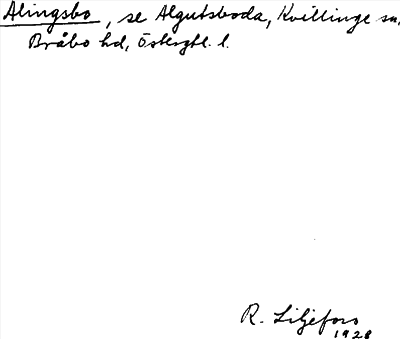 Alingsbo, se Algutsboda, Kvillinge sn,
Bråbo hd, Östergtl. l.
R. Liljefors
1928